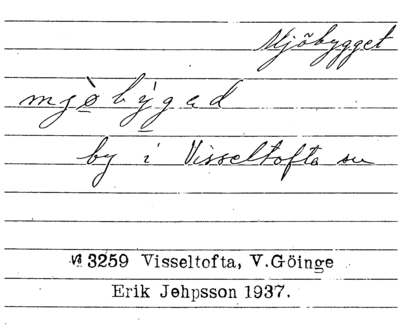 Mjöbygget
mjø̀bỳgad
by i Visseltofta sn
VI 3259 Visseltofta, V.Göinge
Erik Jehpsson 1937.